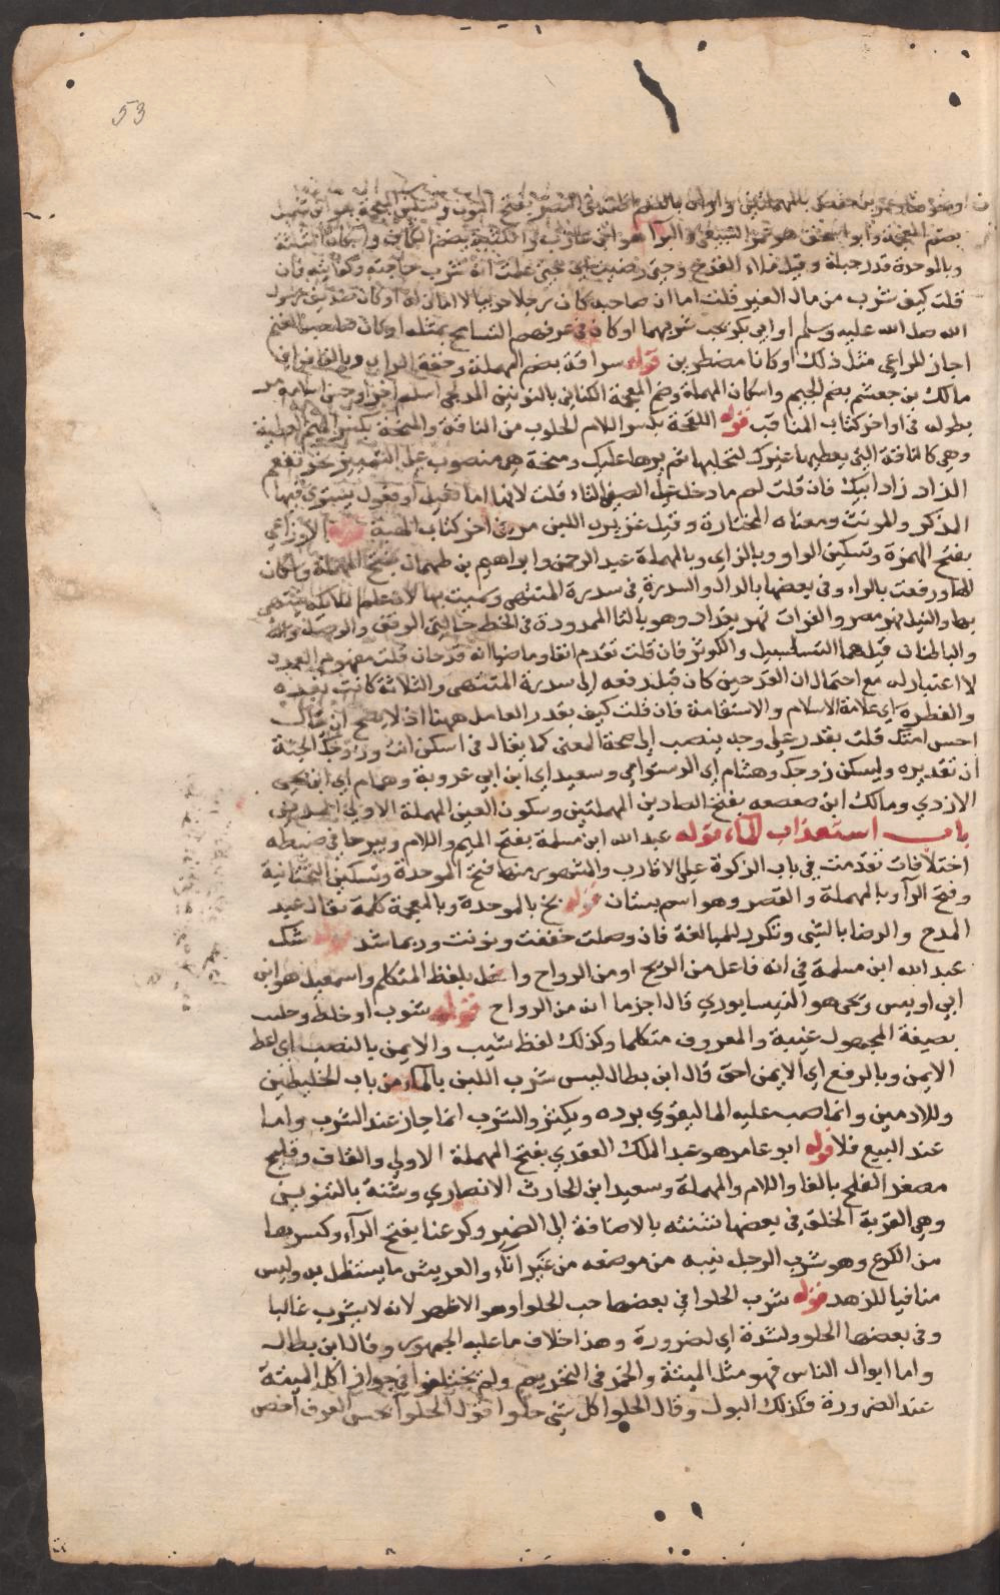 53
وبالوحدة قدر حلبة وقيل ملاء القدح وحتى رضيت اى حتى علمت انه شرب حاجته وكفايته فان
قلت كيف شرب من مال الغير قلت اما ان صاحبه كان رجلا حربيا لا امان له او كان صديق رسول
الله صلى الله عليه وسلم او ابى بكر يحب شربهما او كان في عرفهم التسامح بمثله او كان صاحب الغنم
اجاز للراعي مثل ذلك او كانا مضطرين قوله سراقة بضم المهملة وخفة الراء وبالقاف ابن
مالك بن جعشم بضم الجيم واسكان المهملة وضم المعجمة الكناني بالنونين المدلجي اسلم اخرا وحسن اسلامه مر
بطوله في اواخر كتاب المناقب قوله اللقحة بكسر اللام الحلوب من الناقة والمنحة بكسر الميم العطية
وهي كالناقة التي يعطيها غيرك لتحلبها ثم يردها عليك ومنحة هي منصوب على التمييز نحو نعم
الزاد زاد ابيك فان قلت لم ما دخل على الصفي التاء قلت لانها اما فعيل او فعول يستوي فيها
المذكر والمونث ومعناه المختارة وقيل غزيرة اللبن مر في اخر كتاب الهبة قوله الاوزاعي
بفتح الهمزة وتسكين الواو وبالزاي وبالمهملة عبد الرحمن وابراهيم بن طهمان بفتح المهملة واسكان
الهاء ورفعت بالراء وفي بعضها بالدال والسدرة في سدرة المنتهى وسميت بها لان علم الملائكة ينتهي
بها والنيل نهر مصر والفرات نهر بغداد وهو بالتا الممدودة في الخط حالتي الوقف والوصل واما
والباطنان قيل هما السلسبيل والكوثر فان قلت تقدم انفا وماضيا انه قدحان قلت مفهوم العدد
لا اعتبار له مع احتمال ان القدحين كان قبل رفعه الى سدرة المنتهى والثلاثة كانت بعده
والفطرة اي علامة الاسلام والاستقامة فان قلت كيف يقدر العامل ههنا اذ لا يصح ان يقال
احسن امتك قلت يقدر على وجه ينصب الى صحة المعنى كما يقال في اسكن انت وزوجك الجنة
ان تقديره وليسكن زوجك وهشام اي الدستوائي وسعيد اي ابن ابي عروبة وهمام اي ابن يحيى
الازدي ومالك ابن صعصعه بفتح الصادين المهملتين وسكون العين المهملة الاولى
باب استعذاب الماء قوله عبد الله ابن مسلمة بفتح الميم واللام وبيرحا في ضبطه
اختلافات تقدمت في باب الزكوة على الاقارب والمشهور منها فتح الموحدة وتسكين التحتانية
وفتح الرآء وبالمهملة والقصر وهو اسم بستان قوله بخ بالموحدة وبالمعجمة كلمة تقال عند
المدح والرضا بالشي وتكرر للمبالغة فان وصلت خففت ونونت وربما شدد قوله شك
عبد الله ابن مسلمة في انه فاعل من الربح او من الرواح وافعل بلفظ المتكلم واسمعيل هو ابن
ابي اويس ويحيى هو النيسابوري قال اجزما انه من الرواح قوله شوب او خلط وحلب
بصيغة المجهول غيبة والمعروف متكلما وكذلك لفظ شيب والايمن بالنصب اي اعط
الايمن وبالرفع اي الايمن احق قال ابن بطال ليس شرب اللبن بالماء من باب الخليطين
وللادمين وانما صب عليه الما ليقوي برده ويكثر والشرب انما جاز عند الشرب واما
عند البيع فلا قوله ابو عامر هو عبد الملك العقدي بفتح المهملة الاولى والقاف وفليح
مصغر الفلح بالفا واللام والمهملة وسعيد ابن الحارث الانصاري وشنة بالتنوين
وهي القربة الخلق في بعضها شنته بالاضافة الى الضمير وكرعنا بفتح الرآء وكسرها
من الكرع وهو شرب الرجل بفيه من موضعه من غير اناء والعريش ما يستظل به وليس
منافيا للزهد قوله شرب الحلوا في بعضها حب الحلوا وهو الاظهر لانه لا يشرب غالبا
وفي بعضها الحلو ولشدة اي لضرورة وهذا خلاف ما عليه الجمهور وقال ابن بطال
واما ابوال الناس فهو مثل الميتة والخمر في التحريم ولم يختلفوا في جواز اكل الميتة
عند الضرورة فكذلك البول وقال الحلوا كل شي حلو اقول الحلوا بحسب العرف اخص